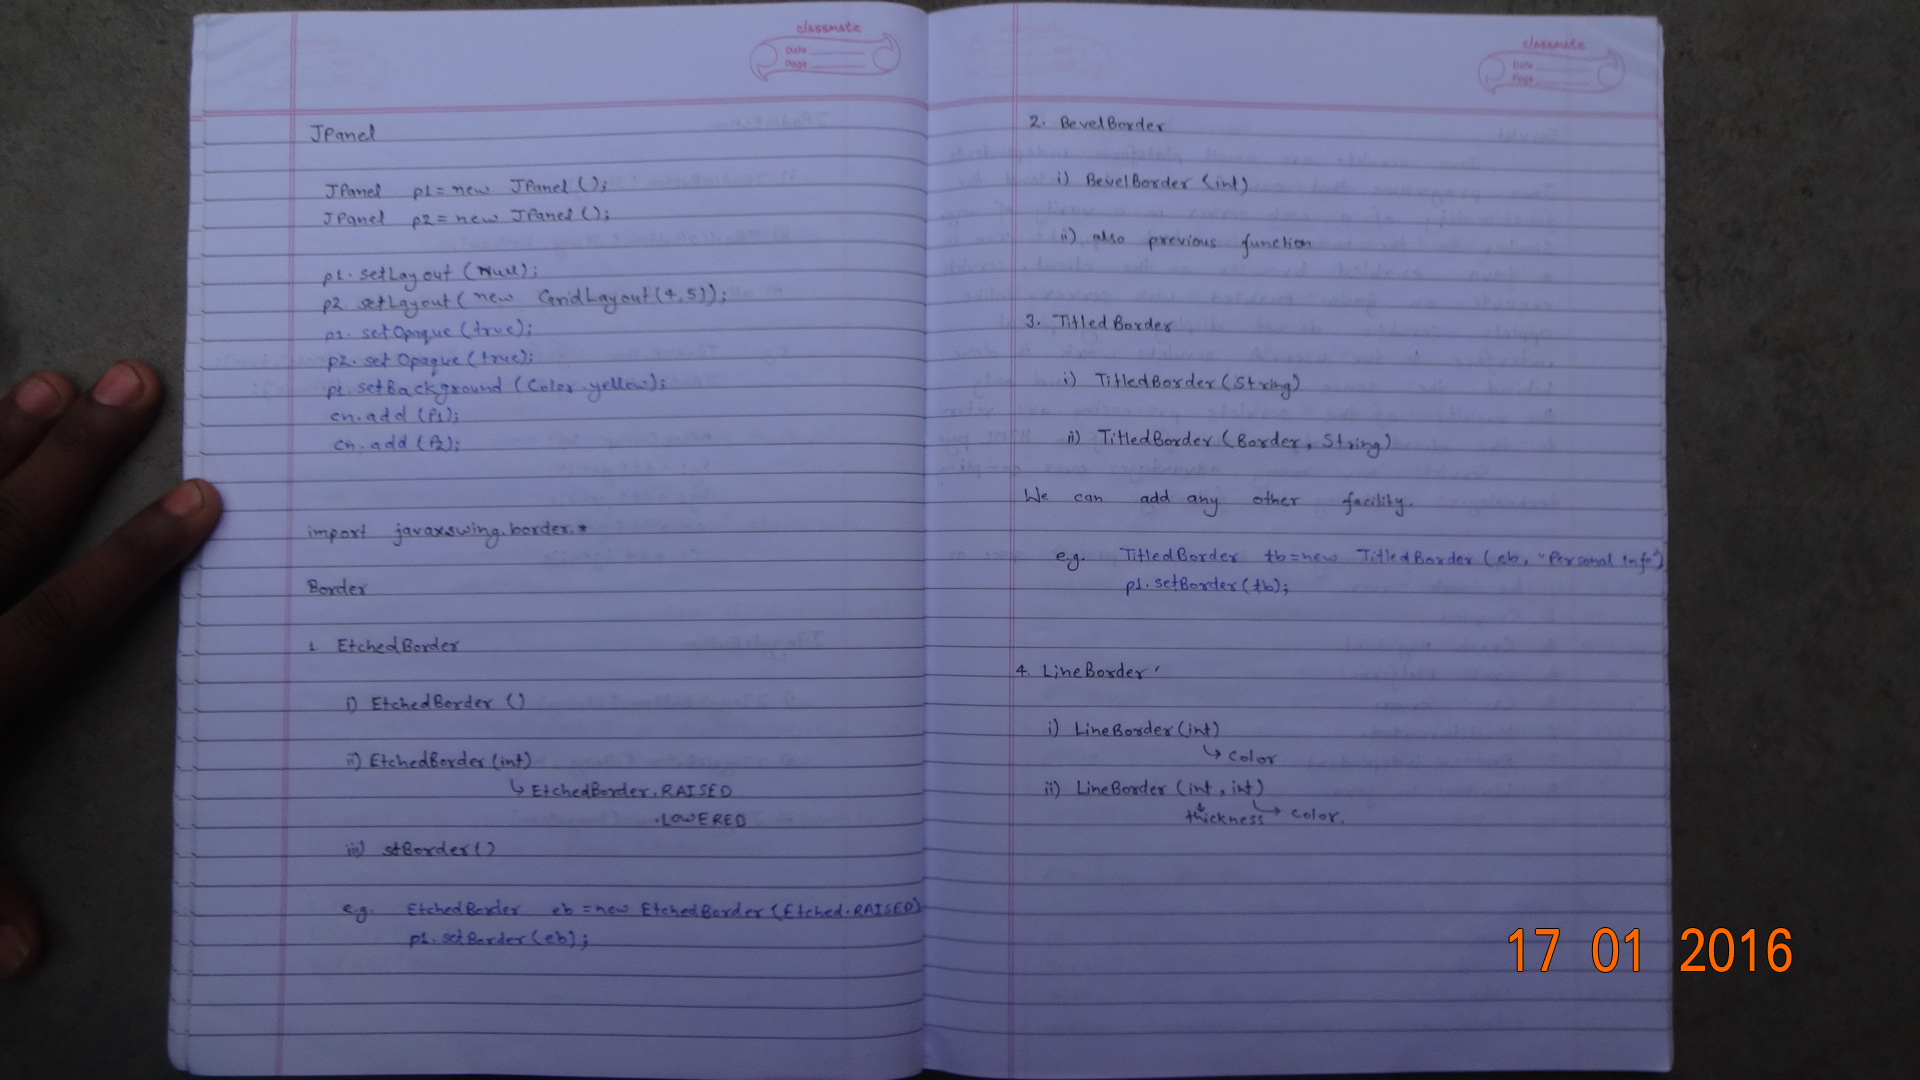 classmate
Date
Page
JPanel
JPanel p1 = new JPanel();
JPanel p2 = new JPanel();
p1.setLayout(Null);
p2.setLayout(new GridLayout(4,5));
p1.setOpaque(true);
p2.setOpaque(true);
p1.setBackground(Color.yellow);
cn.add(P1);
cn.add(P2);
import javaxswing.border.*
Border
1 EtchedBorder
i) EtchedBorder ()
ii) EtchedBorder(int)
↳ EtchedBorder.RAISED
.LOWERED
iii) stBorder()
e.g. EtchedBorder eb = new EtchedBorder(Etched.RAISED)
p1.setBorder(eb);
classmate
Date
Page
2. BevelBorder
i) BevelBorder (int)
ii) also previous function
3. TitledBorder
i) TitledBorder(String)
ii) TitledBorder(Border, String)
We can add any other facility.
e.g. TitledBorder tb=new TitledBorder(eb, "Personal Info")
p1.setBorder(tb);
4. LineBorder
i) LineBorder(int)
↳ color
ii) LineBorder (int, int)
thickness → color.
17 01 2016